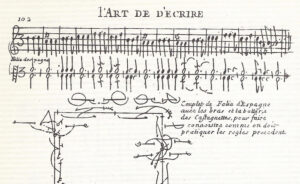 102
L'ART DE D'ECRIRE
Folie d'espagne
Couplet de Folie d'Espagne
avec les bras et la batterie
des Castagnettes, pour faire
connoistre comme on doit
pratiquer les regles precedent.